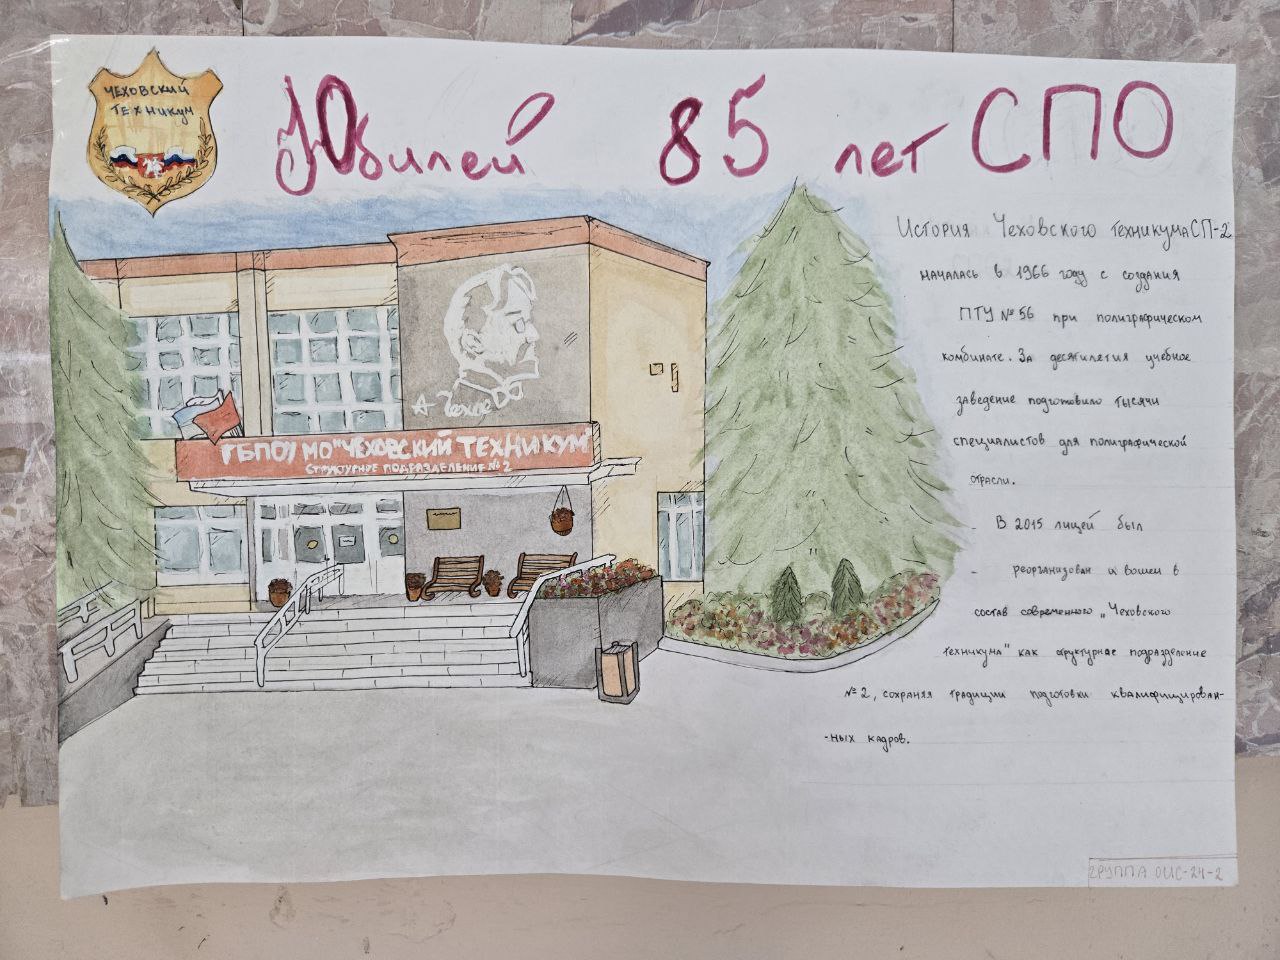 ЧЕХОВСКИЙ
ТЕХНИКУМ
Юбилей 85 лет СПО
История Чеховского техникума СП-2
началась в 1966 году с создания
ПТУ № 56 при полиграфическом
комбинате. За десятилетия учебное
заведение подготовило тысячи
специалистов для полиграфической
отрасли.
- В 2015 лицей был
- реорганизован и вошел в
состав современного „Чеховского
техникума" как структурное подразделение
№ 2, сохраняя традиции подготовки квалифицирован-
-ных кадров.
А Чехов
ГБПОУ МО "ЧЕХОВСКИЙ ТЕХНИКУМ"
СТРУКТУРНОЕ ПОДРАЗДЕЛЕНИЕ №2
ГРУППА ОИС-24-2